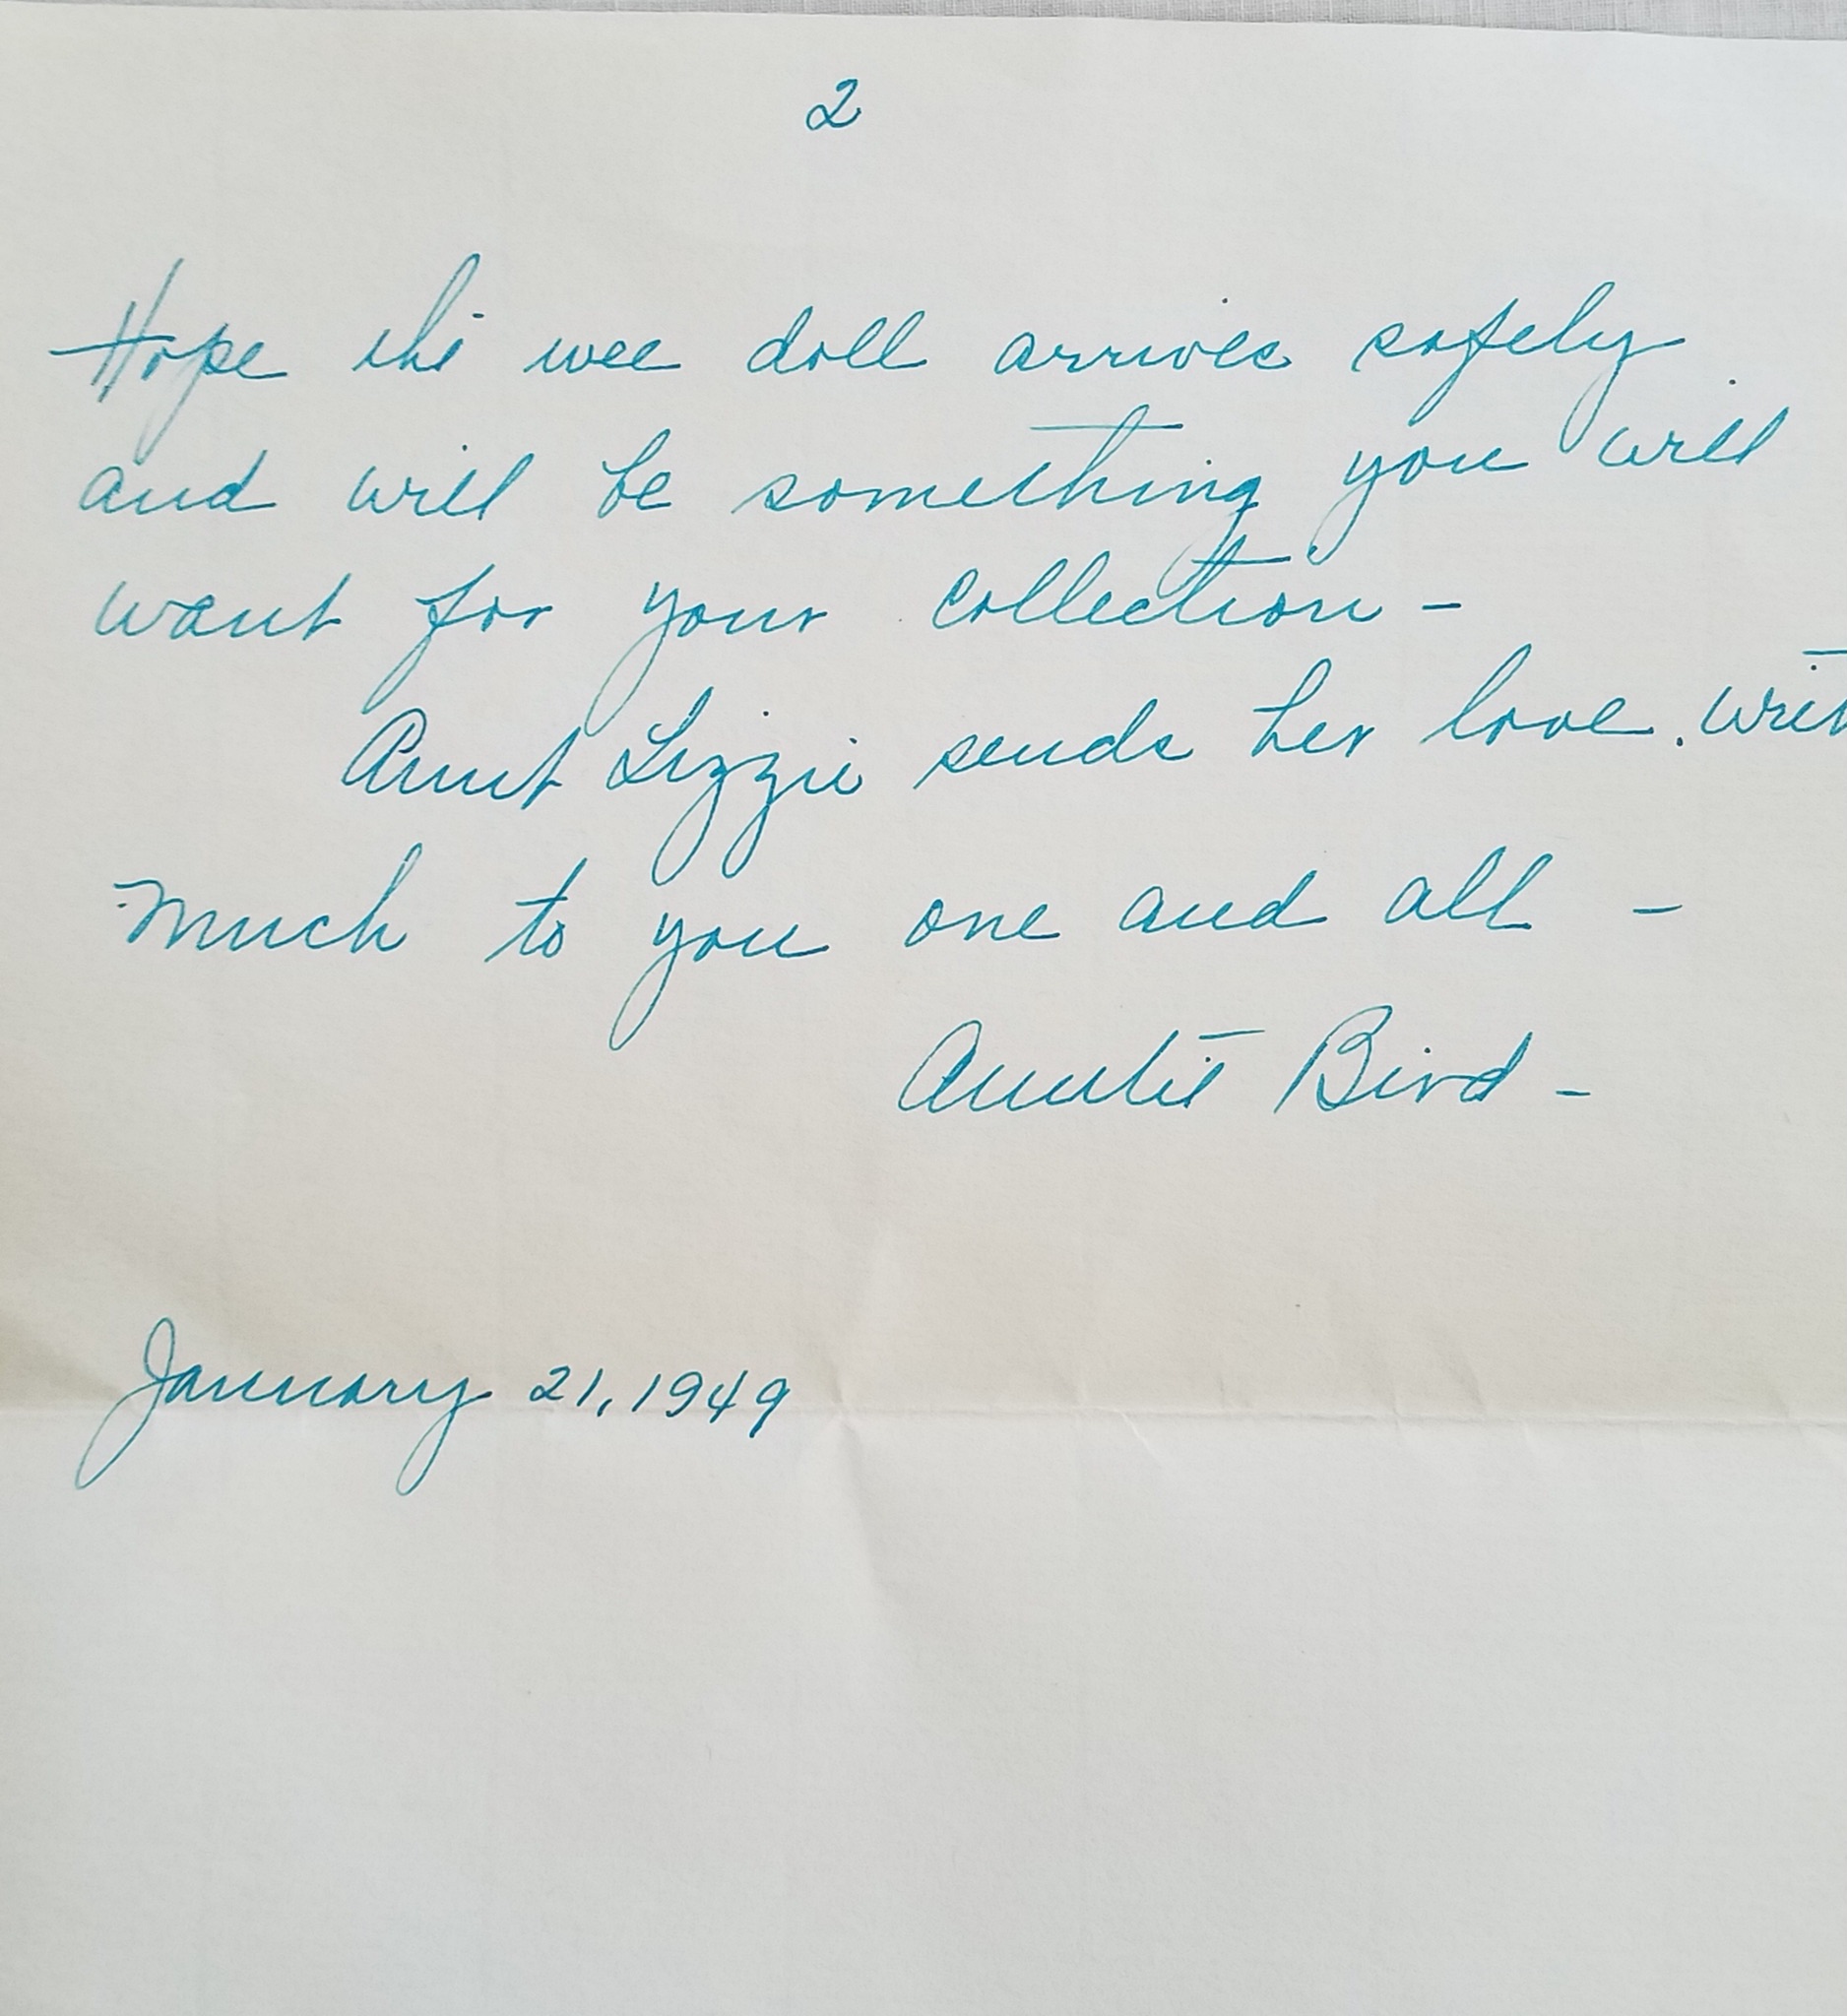 2
Hope the wee doll arrives safely
and will be something you will
want for your collection -
Aunt Lizzie sends her love. With
much to you one and all -
Auntie Bird -
January 21, 1949